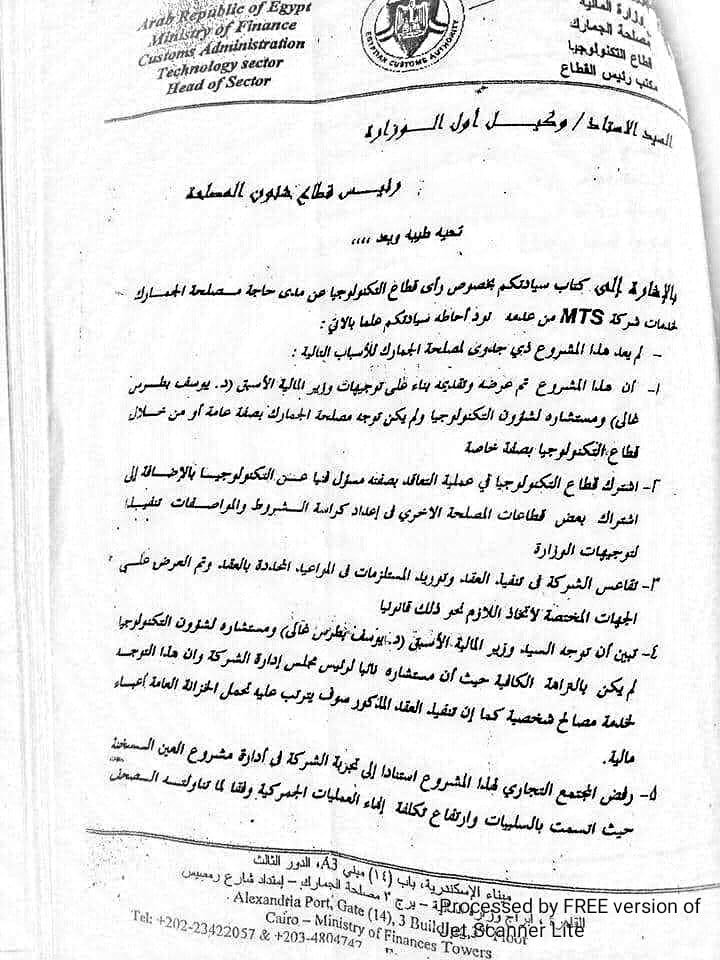 Arab Republic of Egypt
وزارة المالية
Ministry of Finance
مصلحة الجمارك
Customs Administration
قطاع التكنولوجيا
Technology sector
مكتب رئيس القطاع
Head of Sector
EGYPTIAN CUSTOMS AUTHORITY
السيد الاستاذ / وكيــــل أول الــوزارة
رئيس قطاع شئون المصلحة
تحيه طيبه وبعد ,,,,
بالإشارة إلى كتاب سيادتكم بخصوص رأى قطاع التكنولوجيا عن مدى حاجة مصلحة الجمارك
لخدمات شركة MTS من عدمه نود أحاطه سيادتكم علما بالاتي :
- لم يعد هذا المشروع ذي جدوى لمصلحة الجمارك للأسباب التالية :
١- أن هذا المشروع تم عرضه وتقديمه بناء على توجيهات وزير المالية الأسبق (د. يوسف بطرس
غالى) ومستشاره لشؤون التكنولوجيا ولم يكن توجه مصلحة الجمارك بصفة عامة أو من خلال
قطاع التكنولوجيا بصفة خاصة
٢- اشترك قطاع التكنولوجيا في عملية التعاقد بصفته مسؤل فنيا عن التكنولوجيا بالإضافة إلى
اشتراك بعض قطاعات المصلحة الاخري فى إعداد كراسة الشروط والمواصفات تنفيذا
لتوجيهات الوزارة
٣- تقاعس الشركة فى تنفيذ العقد وتوريد المستلزمات فى المواعيد المحددة بالعقد وتم العرض على
الجهات المختصة لاتخاذ اللازم نحو ذلك قانونيا
٤- تبين أن توجه السيد وزير المالية الأسبق (د. يوسف بطرس غالى) ومستشاره لشؤون التكنولوجيا
لم يكن بالنزاهة الكافية حيث أن مستشاره نائبا لرئيس مجلس إدارة الشركة وان هذا التوجه
لخدمة مصالح شخصية كما إن تنفيذ العقد المذكور سوف يترتب عليه تحمل الخزانة العامة أعباء
مالية.
٥- رفض المجتمع التجاري لهذا المشروع استنادا إلى تجربة الشركة فى أدارة مشروع العين السخنة
حيث اتسمت بالسلبيات وارتفاع تكلفة إنهاء العمليات الجمركية وفقا لما تناولته الصحف
ميناء الإسكندرية، باب (١٤) مبنى A3، الدور الثالث
القاهرة، أبراج وزارة المالية – برج ٣ مصلحة الجمارك – إمتداد شارع رمسيس
Alexandria Port, Gate (14), 3 Building, Floor
Cairo – Ministry of Finances Towers
Tel: +202-23422057 & +203-4804747
Processed by FREE version of
Jet Scanner Lite